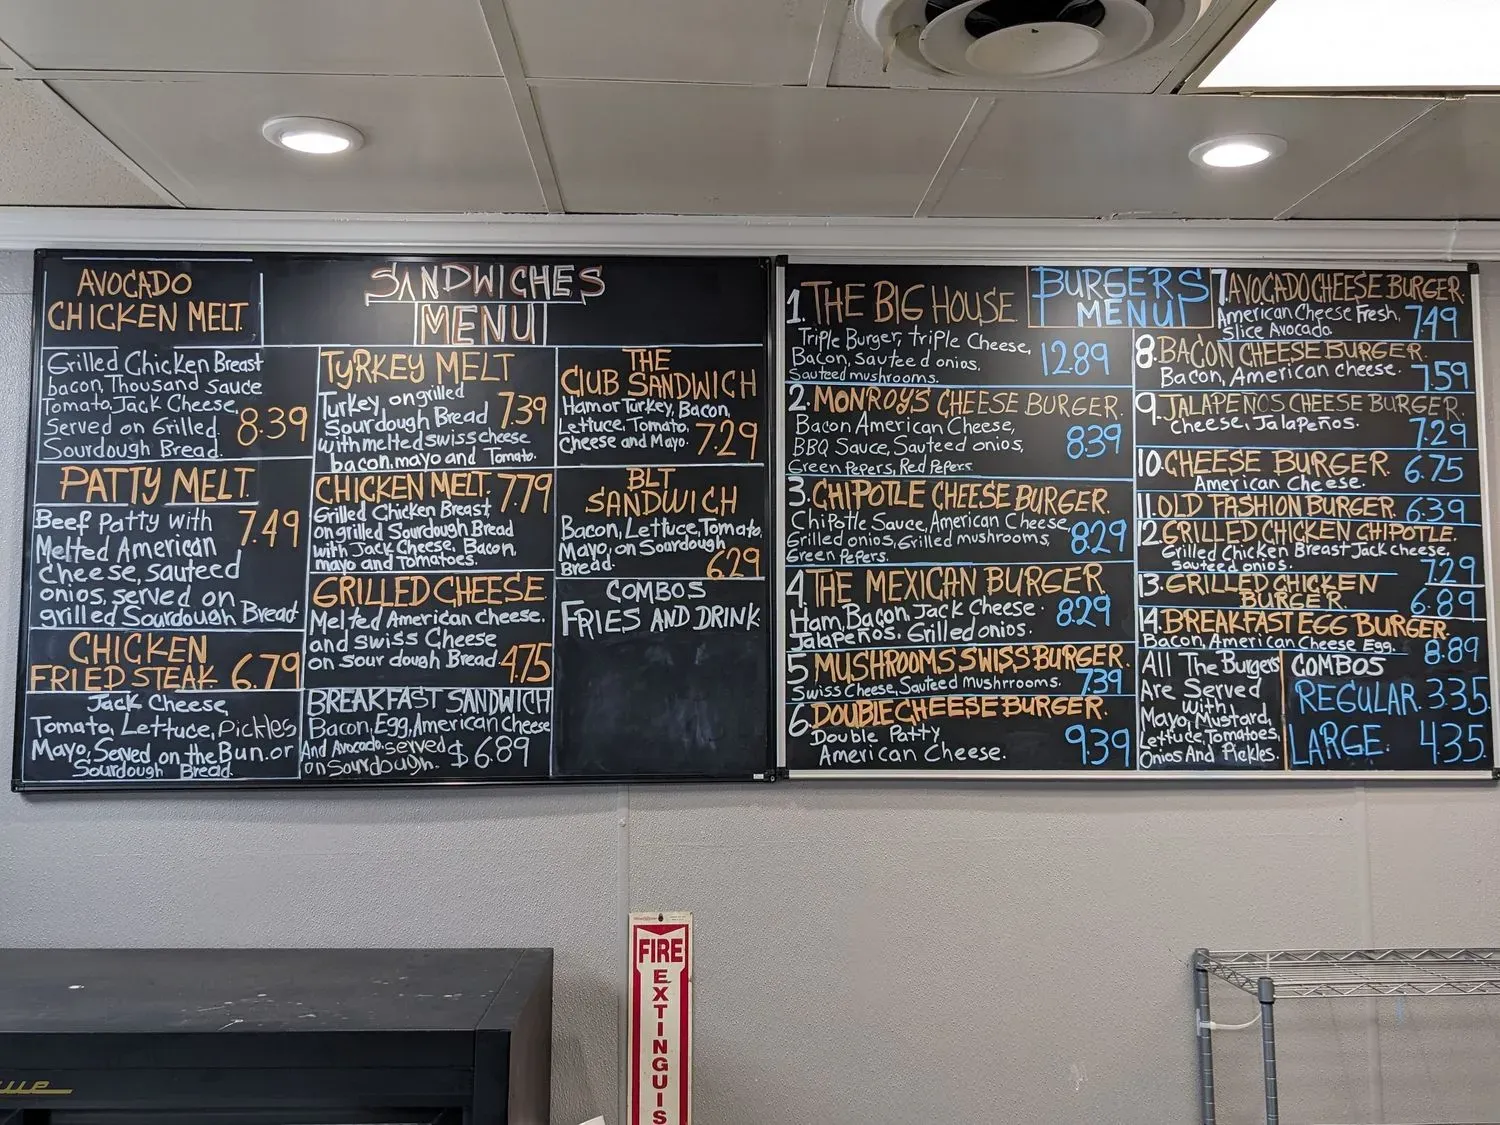 AVOCADO
CHICKEN MELT.
Grilled Chicken Breast
bacon, Thousand Sauce
Tomato, Jack Cheese,
Served on Grilled
Sourdough Bread.
8.39
PATTY MELT.
Beef Patty with
Melted American
cheese, sauteed
onios, served on
grilled Sourdough Bread
7.49
CHICKEN
FRIED STEAK 6.79
Jack Cheese,
Tomato, Lettuce, Pickles
Mayo, Served on the Bun.or
Sourdough Bread.
SANDWICHES
MENU
TYRKEY MELT
Turkey on grilled
Sourdough Bread
with melted swiss cheese
bacon, mayo and Tomato.
7.39
CHICKEN MELT. 7.79
Grilled Chicken Breast
on grilled Sourdough Bread
with Jack Cheese, Bacon,
mayo and Tomatoes.
GRILLED CHEESE
Melted American Cheese.
and swiss Cheese
on sour dough Bread.
4.75
BREAKFAST SANDWICH
Bacon, Egg, American Cheese
And Avocado. served
on Sourdough. $ 6.89
THE
CLUB SANDWICH
Ham or Turkey, Bacon,
Lettuce, Tomato,
Cheese and Mayo.
7.29
BLT
SANDWICH
Bacon, Lettuce, Tomato,
Mayo, on Sourdough
Bread.
6.29
COMBOS
FRIES AND DRINK
1. THE BIG HOUSE
Triple Burger, triple Cheese,
Bacon, Sauteed onios,
Sauteed mushrooms.
12.89
2. MONROY'S CHEESE BURGER.
Bacon American Cheese,
BBQ Sauce, Sauteed onios,
Green Pepers, Red Pepers.
8.39
3. CHIPOTLE CHEESE BURGER.
Chipotle Sauce, American Cheese,
Grilled onios, Grilled mushrooms,
Green Pepers.
8.29
4 THE MEXICAN BURGER.
Ham, Bacon, Jack Cheese.
Jalapeños. Grilled onios.
8.29
5 MUSHROOMS SWISS BURGER.
Swiss Cheese, Sauteed Mushrrooms.
7.39
6. DOUBLE CHEESE BURGER.
Double Patty
American Cheese.
9.39
BURGERS
MENU
7. AVOCADO CHEESE BURGER.
American Cheese Fresh,
Slice Avocado.
7.49
8. BACON CHEESE BURGER.
Bacon, American cheese.
7.59
9. JALAPEÑOS CHEESE BURGER.
Cheese, Jalapeños.
7.29
10. CHEESE BURGER. 6.75
American Cheese.
11. OLD FASHION BURGER. 6.39
12. GRILLED CHICKEN CHIPOTLE.
Grilled Chicken Breast Jack cheese,
sauteed onios.
7.29
13. GRILLED CHICKEN
BURGER.
6.89
14. BREAKFAST EGG BURGER.
Bacon, American Cheese Egg.
8.89
All The Burgers
Are Served
with
Mayo, Mustard,
Lettuce, Tomatoes,
Onios And Pickles.
COMBOS
REGULAR. 3.35
LARGE. 4.35
FIRE
EXTINGUIS